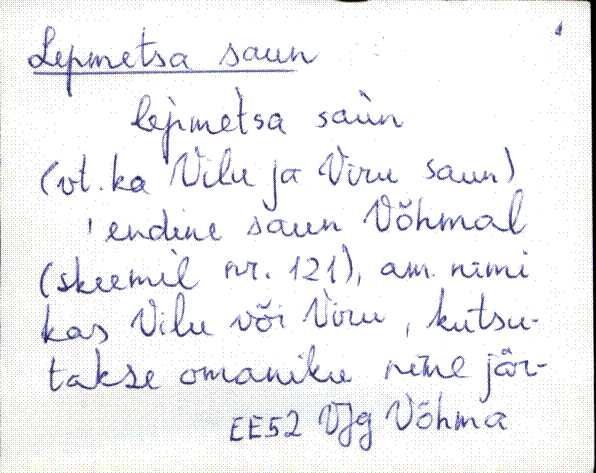 Lepmetsa saun
lèpmètsa saùn
(vt. ka Vilu ja Viru saun)
'endine saun Võhmal
(skeemil nr. 121), am. nimi
kas Vilu või Viru, kutsu-
takse omaniku nime jär-
EE52 VJg Võhma